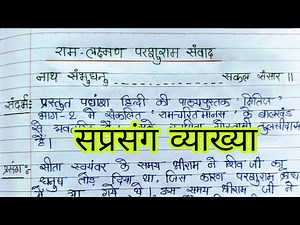 राम-लक्ष्मण परशुराम संवाद
नाथ संभुधनु सकल संसार ॥
संदर्भ: प्रस्तुत पद्यांश हिन्दी की पाठ्यपुस्तक क्षितिज
भाग-2 में संकलित 'रामचरितमानस' के बालखंड
से
सप्रसंग व्याख्या
है।
प्रसंग: सीता स्वयंवर के समय श्रीराम ने शिव जी का
धनुष तोड़ दिया था, जिस कारण परशुराम क्रोध
में आ गये थे। उस समय श्रीराम ने